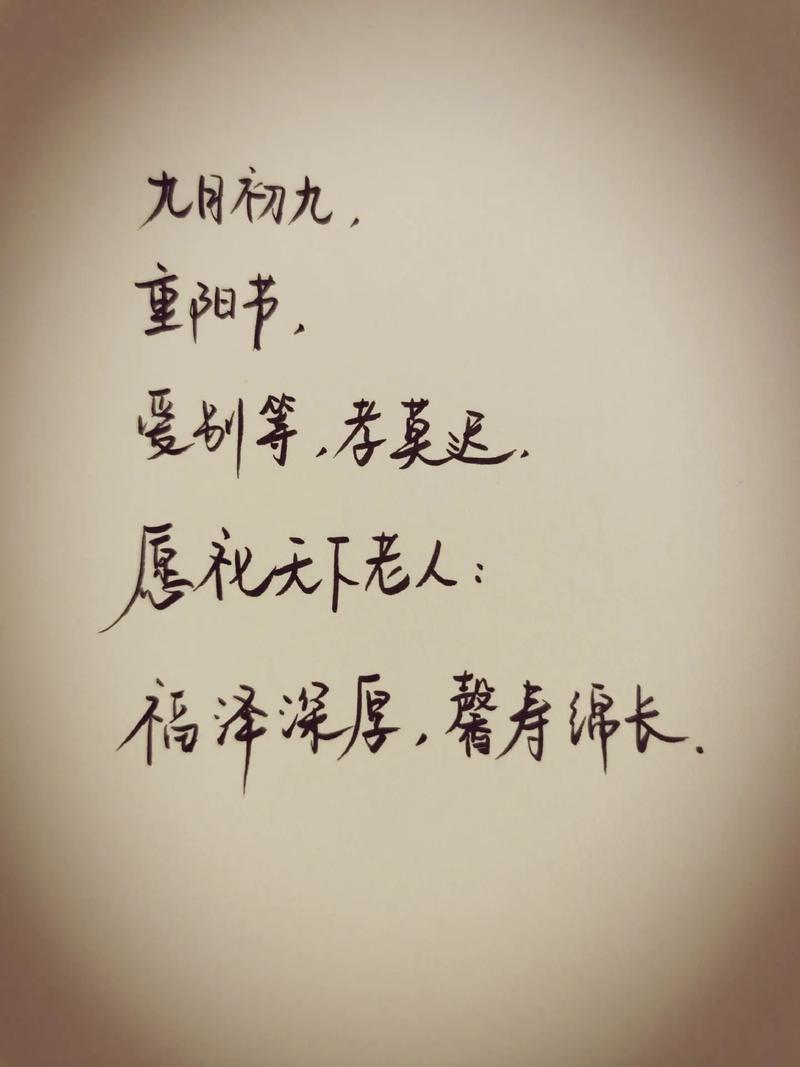 九月初九,
重阳节,
爱别等,孝莫迟,
愿祝天下老人:
福泽深厚,馨寿绵长.